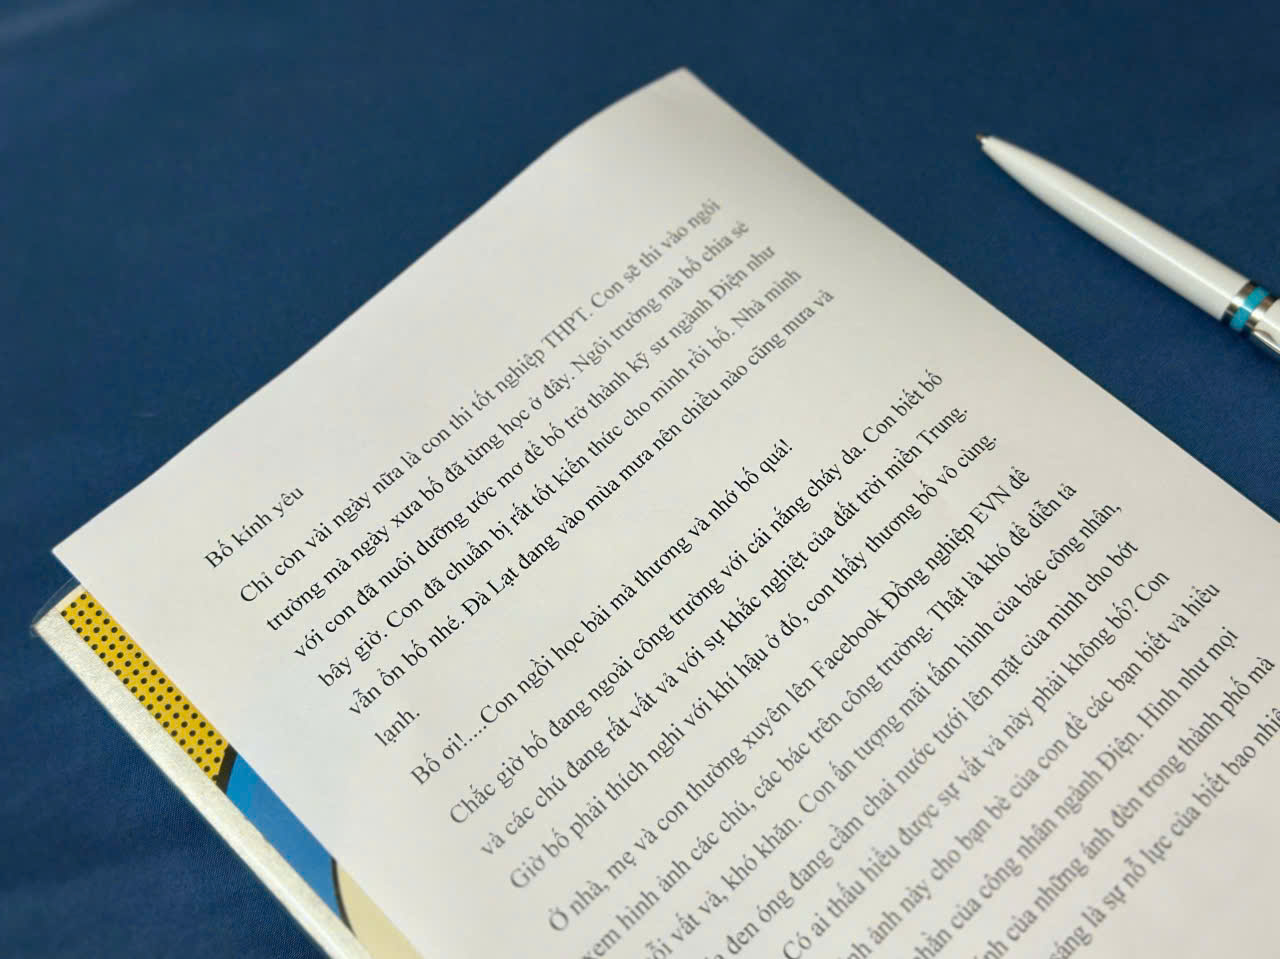 Bố kính yêu
Chỉ còn vài ngày nữa là con thi tốt nghiệp THPT. Con sẽ thi vào ngôi
trường mà ngày xưa bố đã từng học ở đây. Ngôi trường mà bố chia sẻ
với con đã nuôi dưỡng ước mơ để bố trở thành kỹ sư ngành Điện như
bây giờ. Con đã chuẩn bị rất tốt kiến thức cho mình rồi bố. Nhà mình
vẫn ổn bố nhé. Đà Lạt đang vào mùa mưa nên chiều nào cũng mưa và
lạnh.
Bố ơi!.....Con ngồi học bài mà thương và nhớ bố quá!
Chắc giờ bố đang ngoài công trường với cái nắng cháy da. Con biết bố
và các chú đang rất vất và với sự khắc nghiệt của đất trời miền Trung.
Giờ bố phải thích nghi với khí hậu ở đó, con thấy thương bố vô cùng.
Ở nhà, mẹ và con thường xuyên lên Facebook Đồng nghiệp EVN để
xem hình ảnh các chú, các bác trên công trường. Thật là khó để diễn tả
nỗi vất vả, khó khăn. Con ấn tượng mãi tấm hình của bác công nhân,
da đen óng đang cầm chai nước tưới lên mặt của mình cho bớt
Có ai thấu hiểu được sự vất vả này phải không bố? Con
ảnh này cho bạn bè của con để các bạn biết và hiểu
của công nhân ngành Điện. Hình như mọi
của những ánh đèn trong thành phố mà
sáng là sự nỗ lực của biết bao